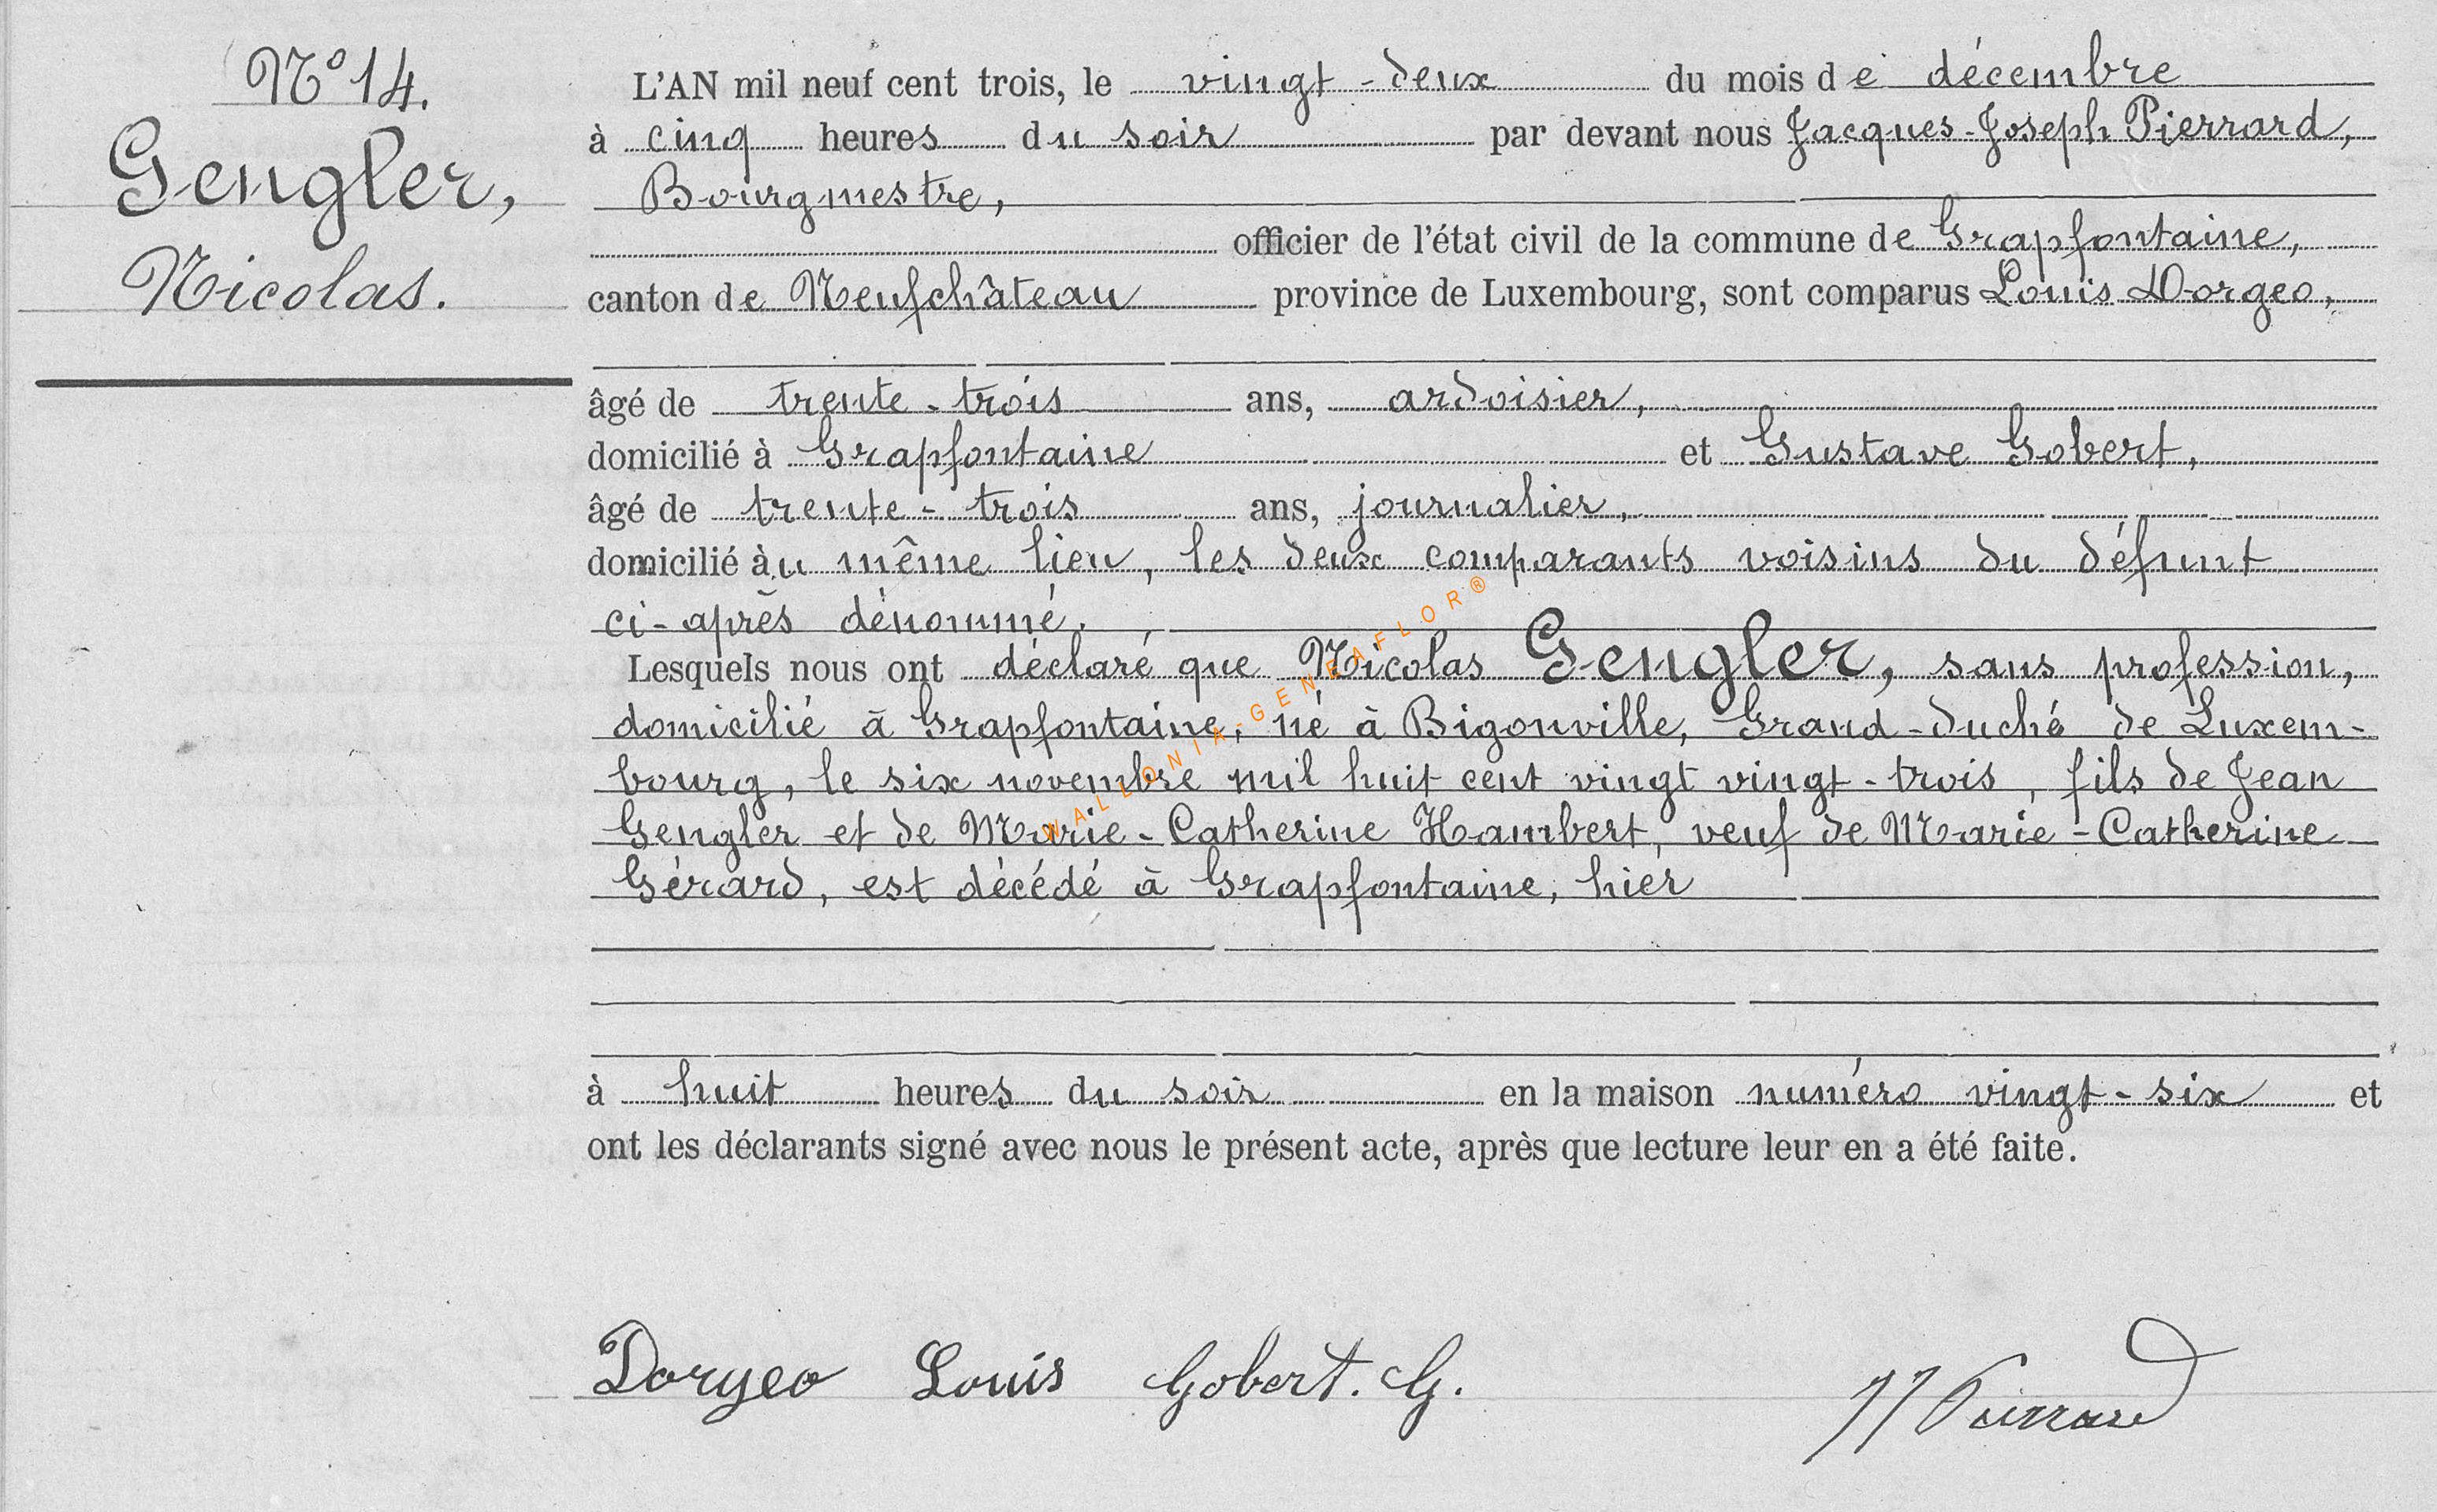 N° 14.
Gengler,
Nicolas.
L'AN mil neuf cent trois, le vingt-deux du mois de décembre
à cinq heures du soir par devant nous Jacques-Joseph Pierrard,
Bourgmestre,
officier de l'état civil de la commune de Grapfontaine,
canton de Neufchâteau province de Luxembourg, sont comparus Louis Dorgeo,
âgé de trente-trois ans, ardoisier,
domicilié à Grapfontaine et Gustave Gobert,
âgé de trente-trois ans, journalier,
domicilié àu même lieu, les deux comparants voisins du défunt
ci-après dénommé.
Lesquels nous ont déclaré que Nicolas Gengler, sans profession,
domicilié à Grapfontaine, né à Bigonville, Grand-duché de Luxem-
bourg, le six novembre mil huit cent vingt vingt-trois, fils de Jean
Gengler et de Marie-Catherine Hambert, veuf de Marie-Catherine
Gérard, est décédé à Grapfontaine, hier
à huit heures du soir en la maison numéro vingt-six et
ont les déclarants signé avec nous le présent acte, après que lecture leur en a été faite.
Dorgeo Louis Gobert. G. JJ Pierrard
WALLONIA-GENEAFLOR®